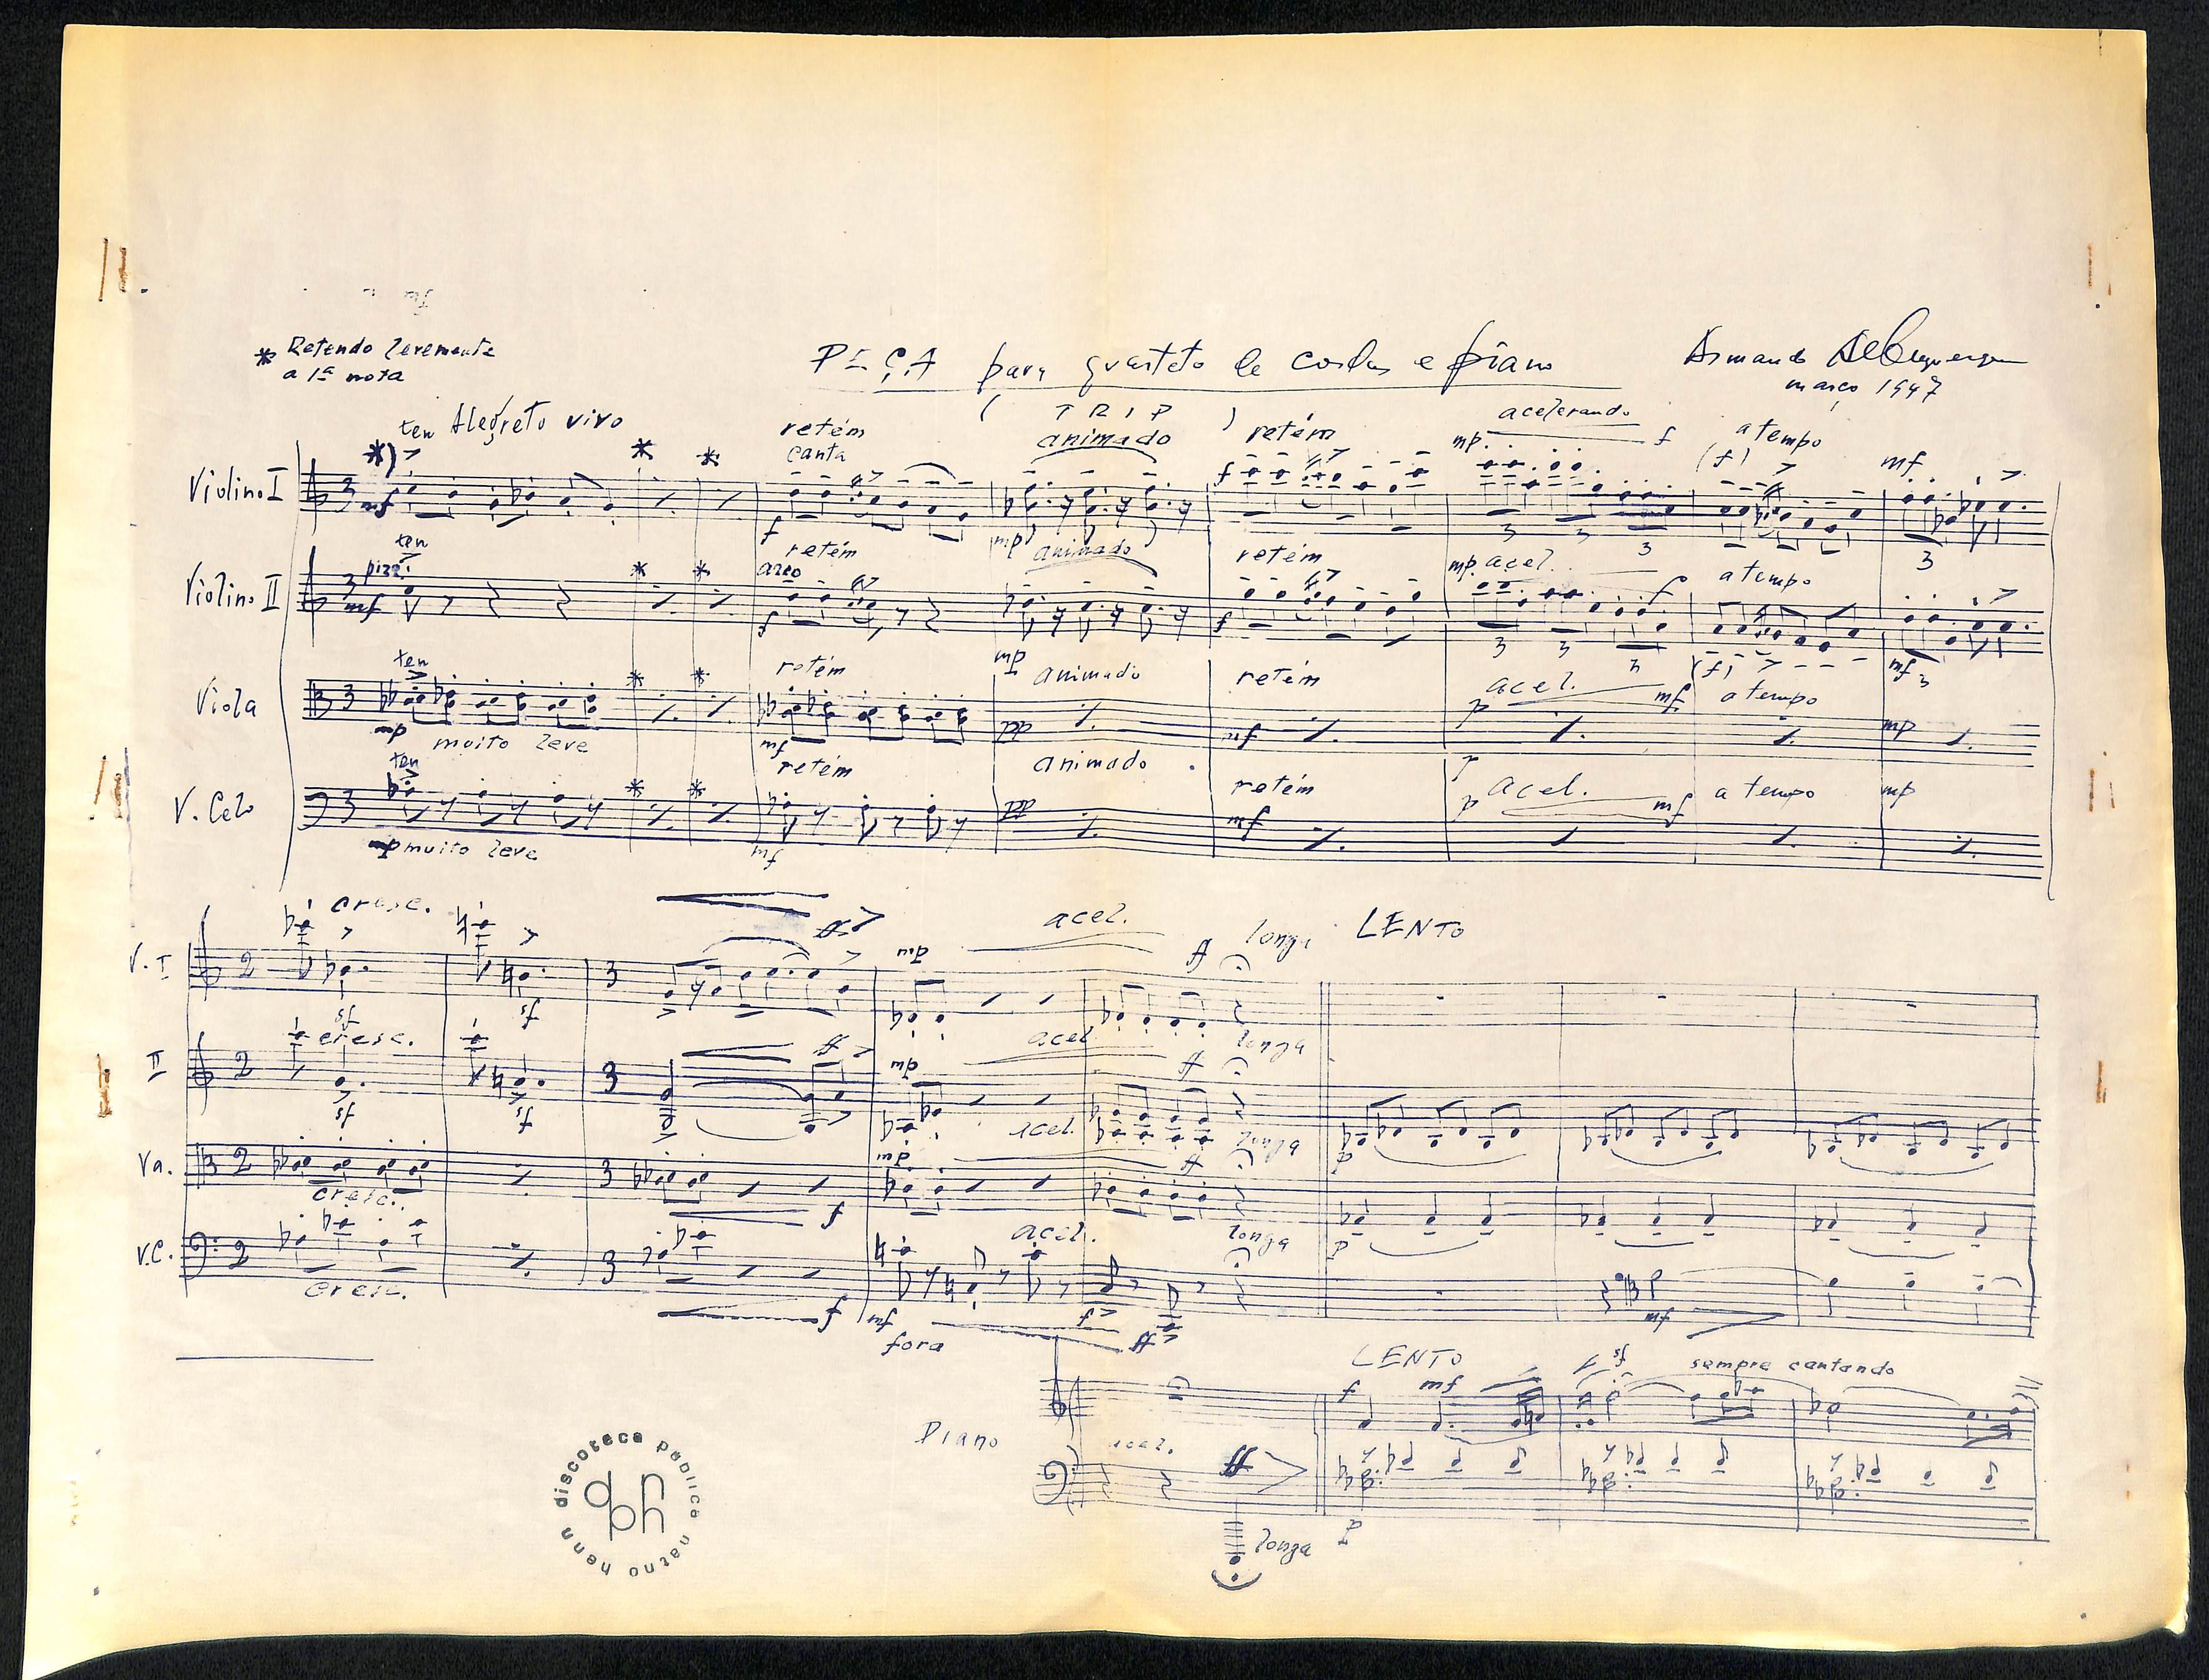 * Retendo levemente
a 1ª nota
PEÇA para quarteto de cordas e piano
( TRIP )
Armando Albuquerque
março 1947
ten Alegreto vivo
retém
canta
animado
retém
acelerando
a tempo
*) > * *
Violino I
3 mf f mp f mp. f (f) mf
3 3 3 3
ten
pizz. * *
retém
arco
animado
retém
mp acel. f
a tempo
Violino II
3 mf f mp f (f) mf
3 3 3 3
ten * *
retém
animado
retém
acel.
a tempo
Viola
3 mp muito leve mf p mf mp
ten * *
retém
animado
retém
acel.
a tempo
V. Celo
3 mp muito leve mf mf p mf mp
cresc. ff acel. ff longa LENTO
V. I
2 sf sf 3 mp
cresc. ff acel. ff longa
II
2 sf sf 3 mp p
acel. ff longa
Va.
2 cresc. 3 f mp p
acel. longa
V.C.
2 cresc. 3 f mf fora f ff mf
LENTO
f mf sf sempre cantando
Piano
acel. ff p
longa
discoteca publica natho henn
dpnh